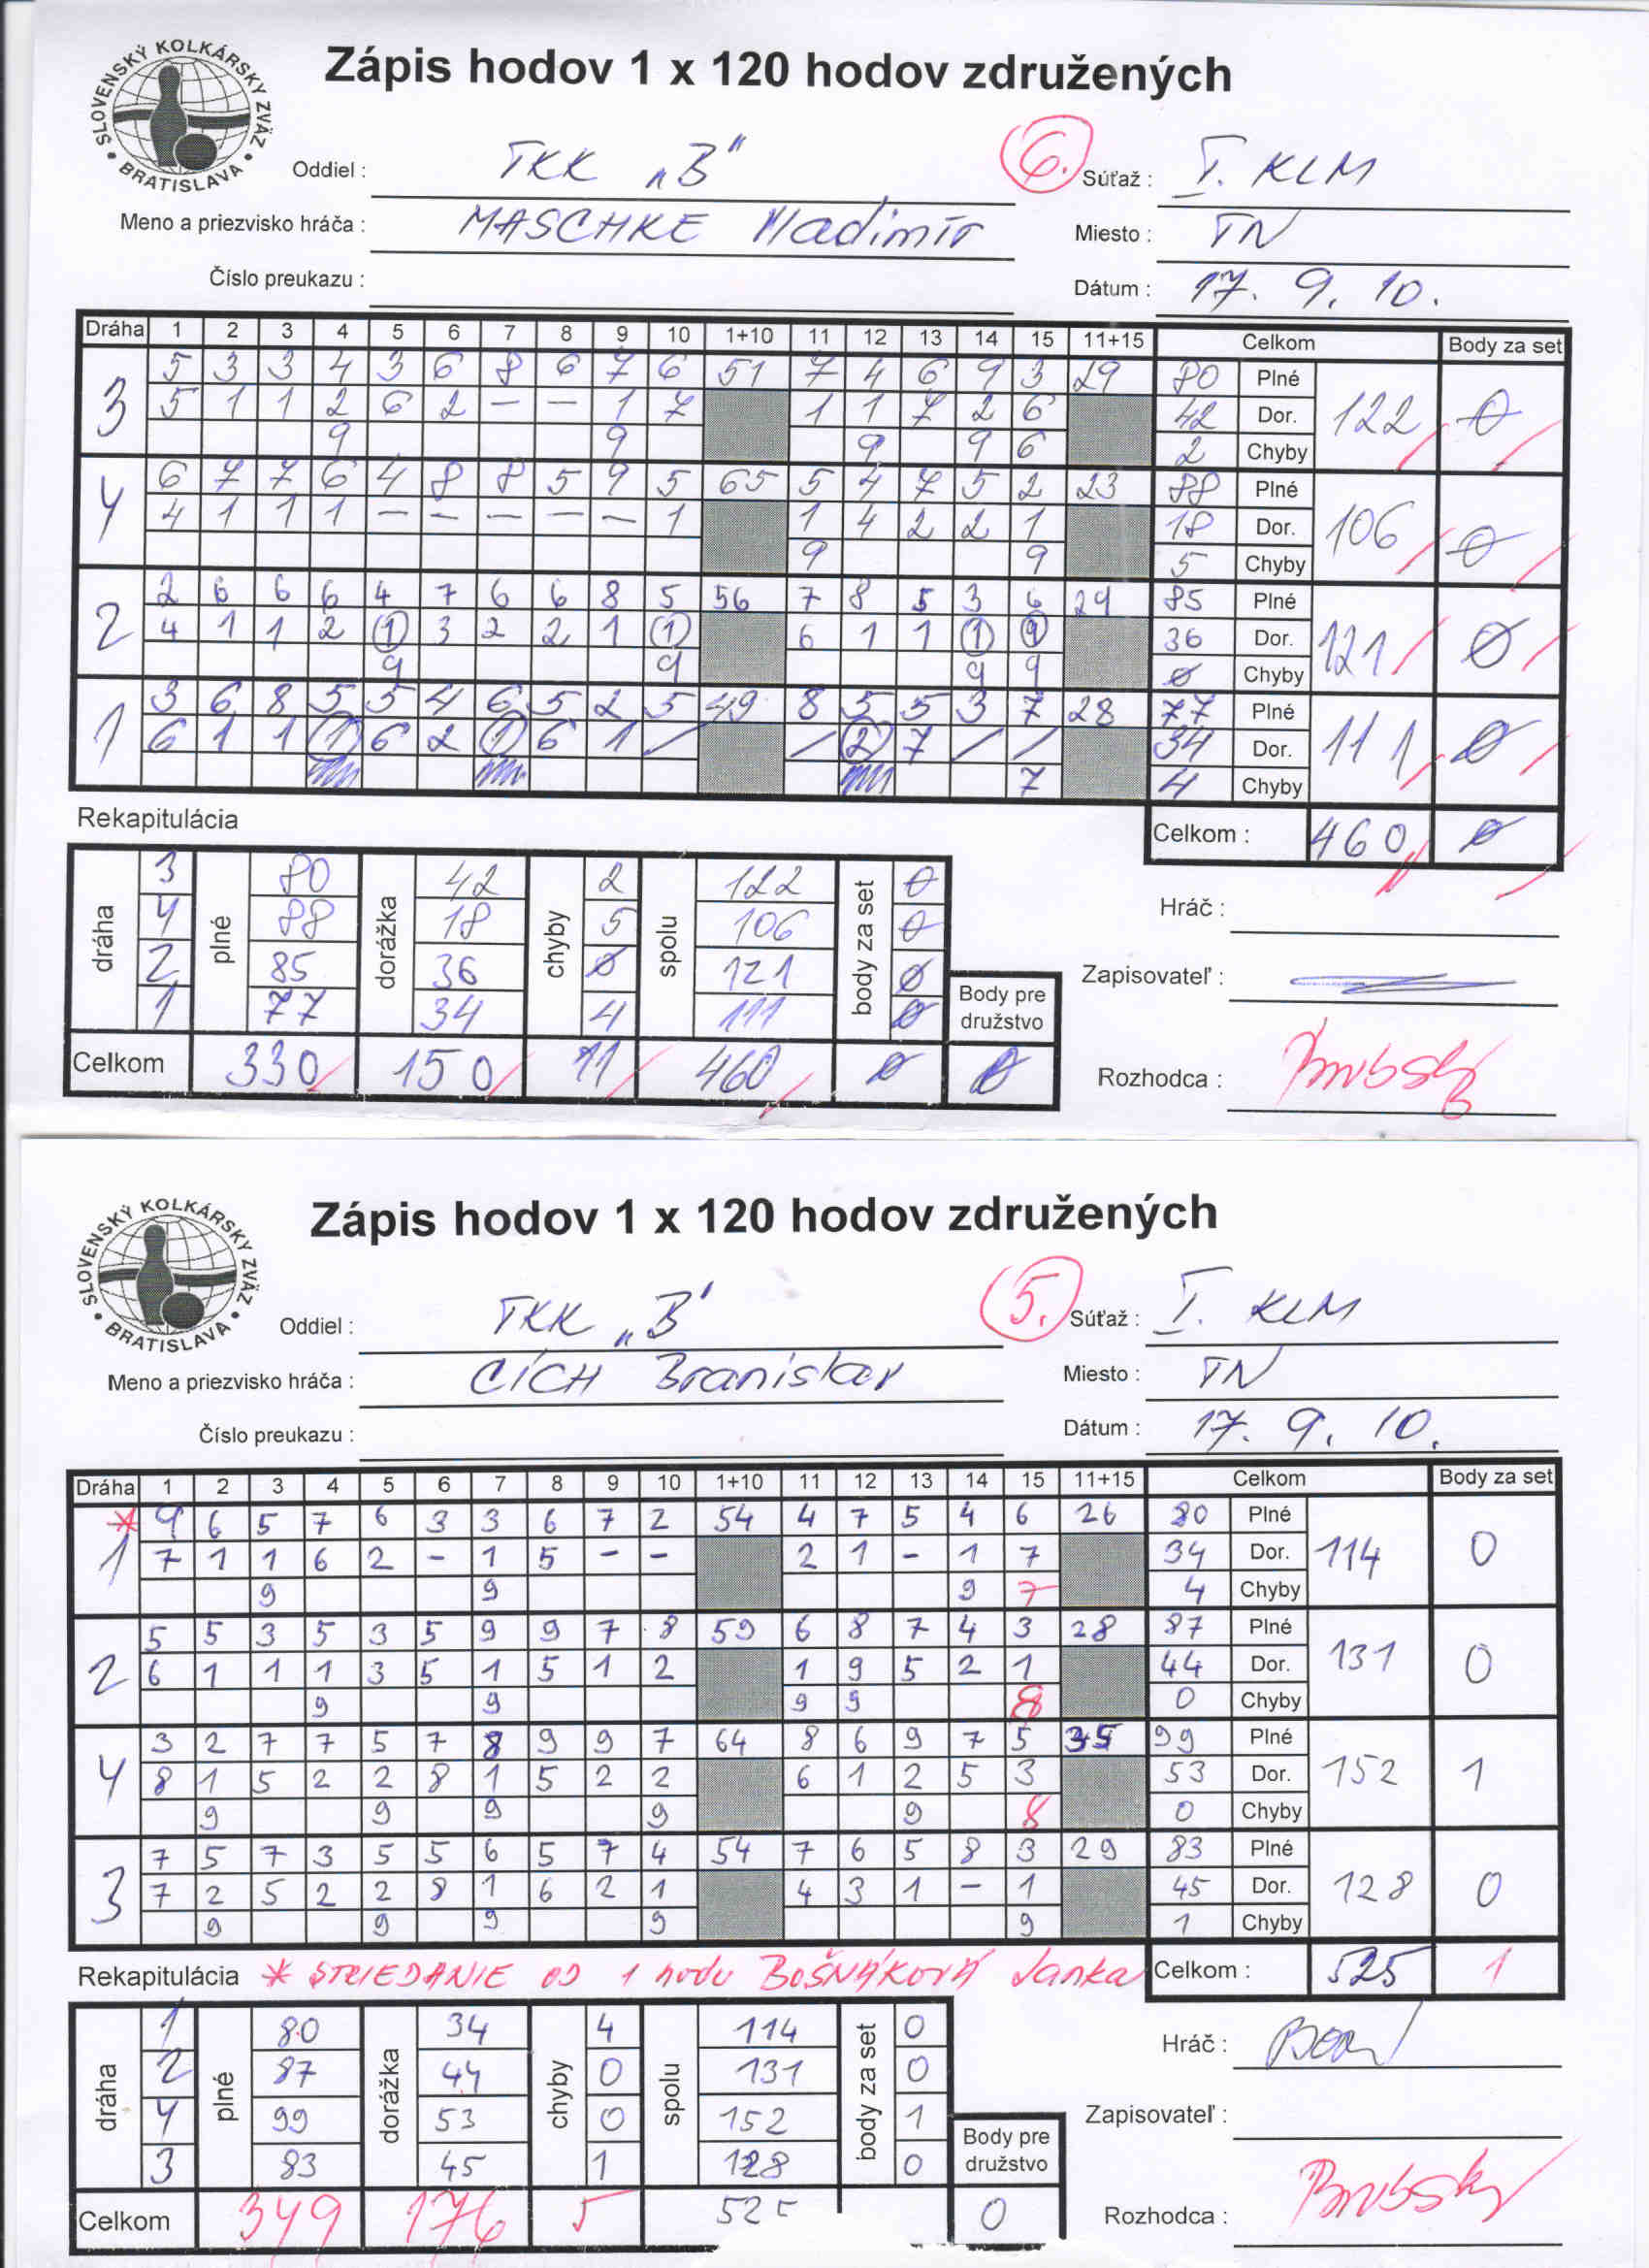 SLOVENSKÝ KOLKÁRSKY ZVÄZ • BRATISLAVA •
Zápis hodov 1 x 120 hodov združených
Oddiel : TKK „B“ 6. Súťaž : I. KLM
Meno a priezvisko hráča : MASCHKE Vladimír Miesto : TN
Číslo preukazu : Dátum : 17. 9. 10.
Dráha 1 2 3 4 5 6 7 8 9 10 1+10 11 12 13 14 15 11+15 Celkom Body za set
3 5 3 3 4 3 6 8 6 7 6 51 7 4 6 9 3 29 80 Plné 122 0
5 1 1 2 6 2 – – 1 7 1 1 7 2 6 42 Dor.
9 9 9 9 6 2 Chyby
4 6 7 7 6 4 8 8 5 9 5 65 5 4 7 5 2 23 88 Plné 106 0
4 1 1 1 – – – – – 1 1 4 2 2 1 18 Dor.
9 9 5 Chyby
2 2 6 6 6 4 7 6 6 8 5 56 7 8 5 3 6 29 85 Plné 121 0
4 1 1 2 1 3 2 2 1 1 6 1 1 1 9 36 Dor.
9 9 9 9 0 Chyby
1 3 6 8 5 5 4 6 5 2 5 49 8 5 5 3 7 28 77 Plné 111 0
6 1 1 1 6 2 1 6 1 / / 2 7 / / 34 Dor.
7 4 Chyby
Rekapitulácia Celkom : 460 0
dráha 3 plné 80 dorážka 42 chyby 2 spolu 122 body za set 0
4 88 18 5 106 0
Hráč :
2 85 36 0 121 0
Zapisovateľ :
1 77 34 4 111 0 Body pre družstvo
Celkom 330 150 11 460 0 0 Rozhodca :
SLOVENSKÝ KOLKÁRSKY ZVÄZ • BRATISLAVA •
Zápis hodov 1 x 120 hodov združených
Oddiel : TKK „B“ 5. Súťaž : I. KLM
Meno a priezvisko hráča : CÍCH Branislav Miesto : TN
Číslo preukazu : Dátum : 17. 9. 10.
Dráha 1 2 3 4 5 6 7 8 9 10 1+10 11 12 13 14 15 11+15 Celkom Body za set
* 1 9 6 5 7 6 3 3 6 7 2 54 4 7 5 4 6 26 80 Plné 114 0
7 1 1 6 2 – 1 5 – – 2 1 – 1 7 34 Dor.
9 9 9 7 4 Chyby
2 5 5 3 5 3 5 9 9 7 8 59 6 8 7 4 3 28 87 Plné 131 0
6 1 1 1 3 5 1 5 1 2 1 9 5 2 1 44 Dor.
9 9 9 9 8 0 Chyby
4 3 2 7 7 5 7 8 9 9 7 64 8 6 9 7 5 35 99 Plné 152 1
8 1 5 2 2 8 1 5 2 2 6 1 2 5 3 53 Dor.
9 9 9 9 9 8 0 Chyby
3 7 5 7 3 5 5 6 5 7 4 54 7 6 5 8 3 29 83 Plné 128 0
7 2 5 2 2 8 1 6 2 1 4 3 1 – 1 45 Dor.
9 9 9 9 9 1 Chyby
Rekapitulácia * STRIEDANIE OD 1 hodu BOŠNÁKOVÁ Janka Celkom : 525 1
dráha 1 plné 80 dorážka 34 chyby 4 spolu 114 body za set 0
Hráč :
2 87 44 0 131 0
4 99 53 0 152 1
Zapisovateľ :
3 83 45 1 128 0 Body pre družstvo
Celkom 349 176 5 525 0 Rozhodca :